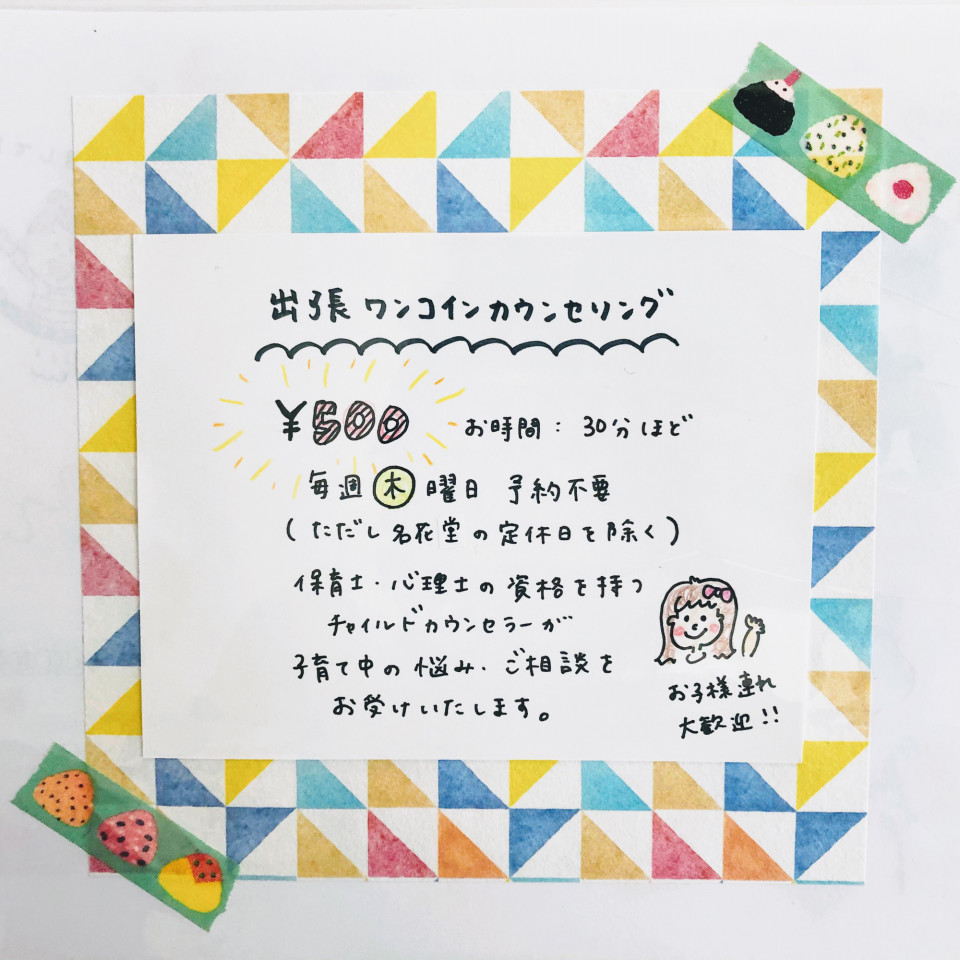 出張ワンコインカウンセリング
¥500 お時間：30分ほど
毎週木曜日 予約不要
(ただし名花堂の定休日を除く)
保育士・心理士の資格を持つ
チャイルドカウンセラーが
子育て中の悩み・ご相談を
お受けいたします。
お子様連れ
大歓迎!!